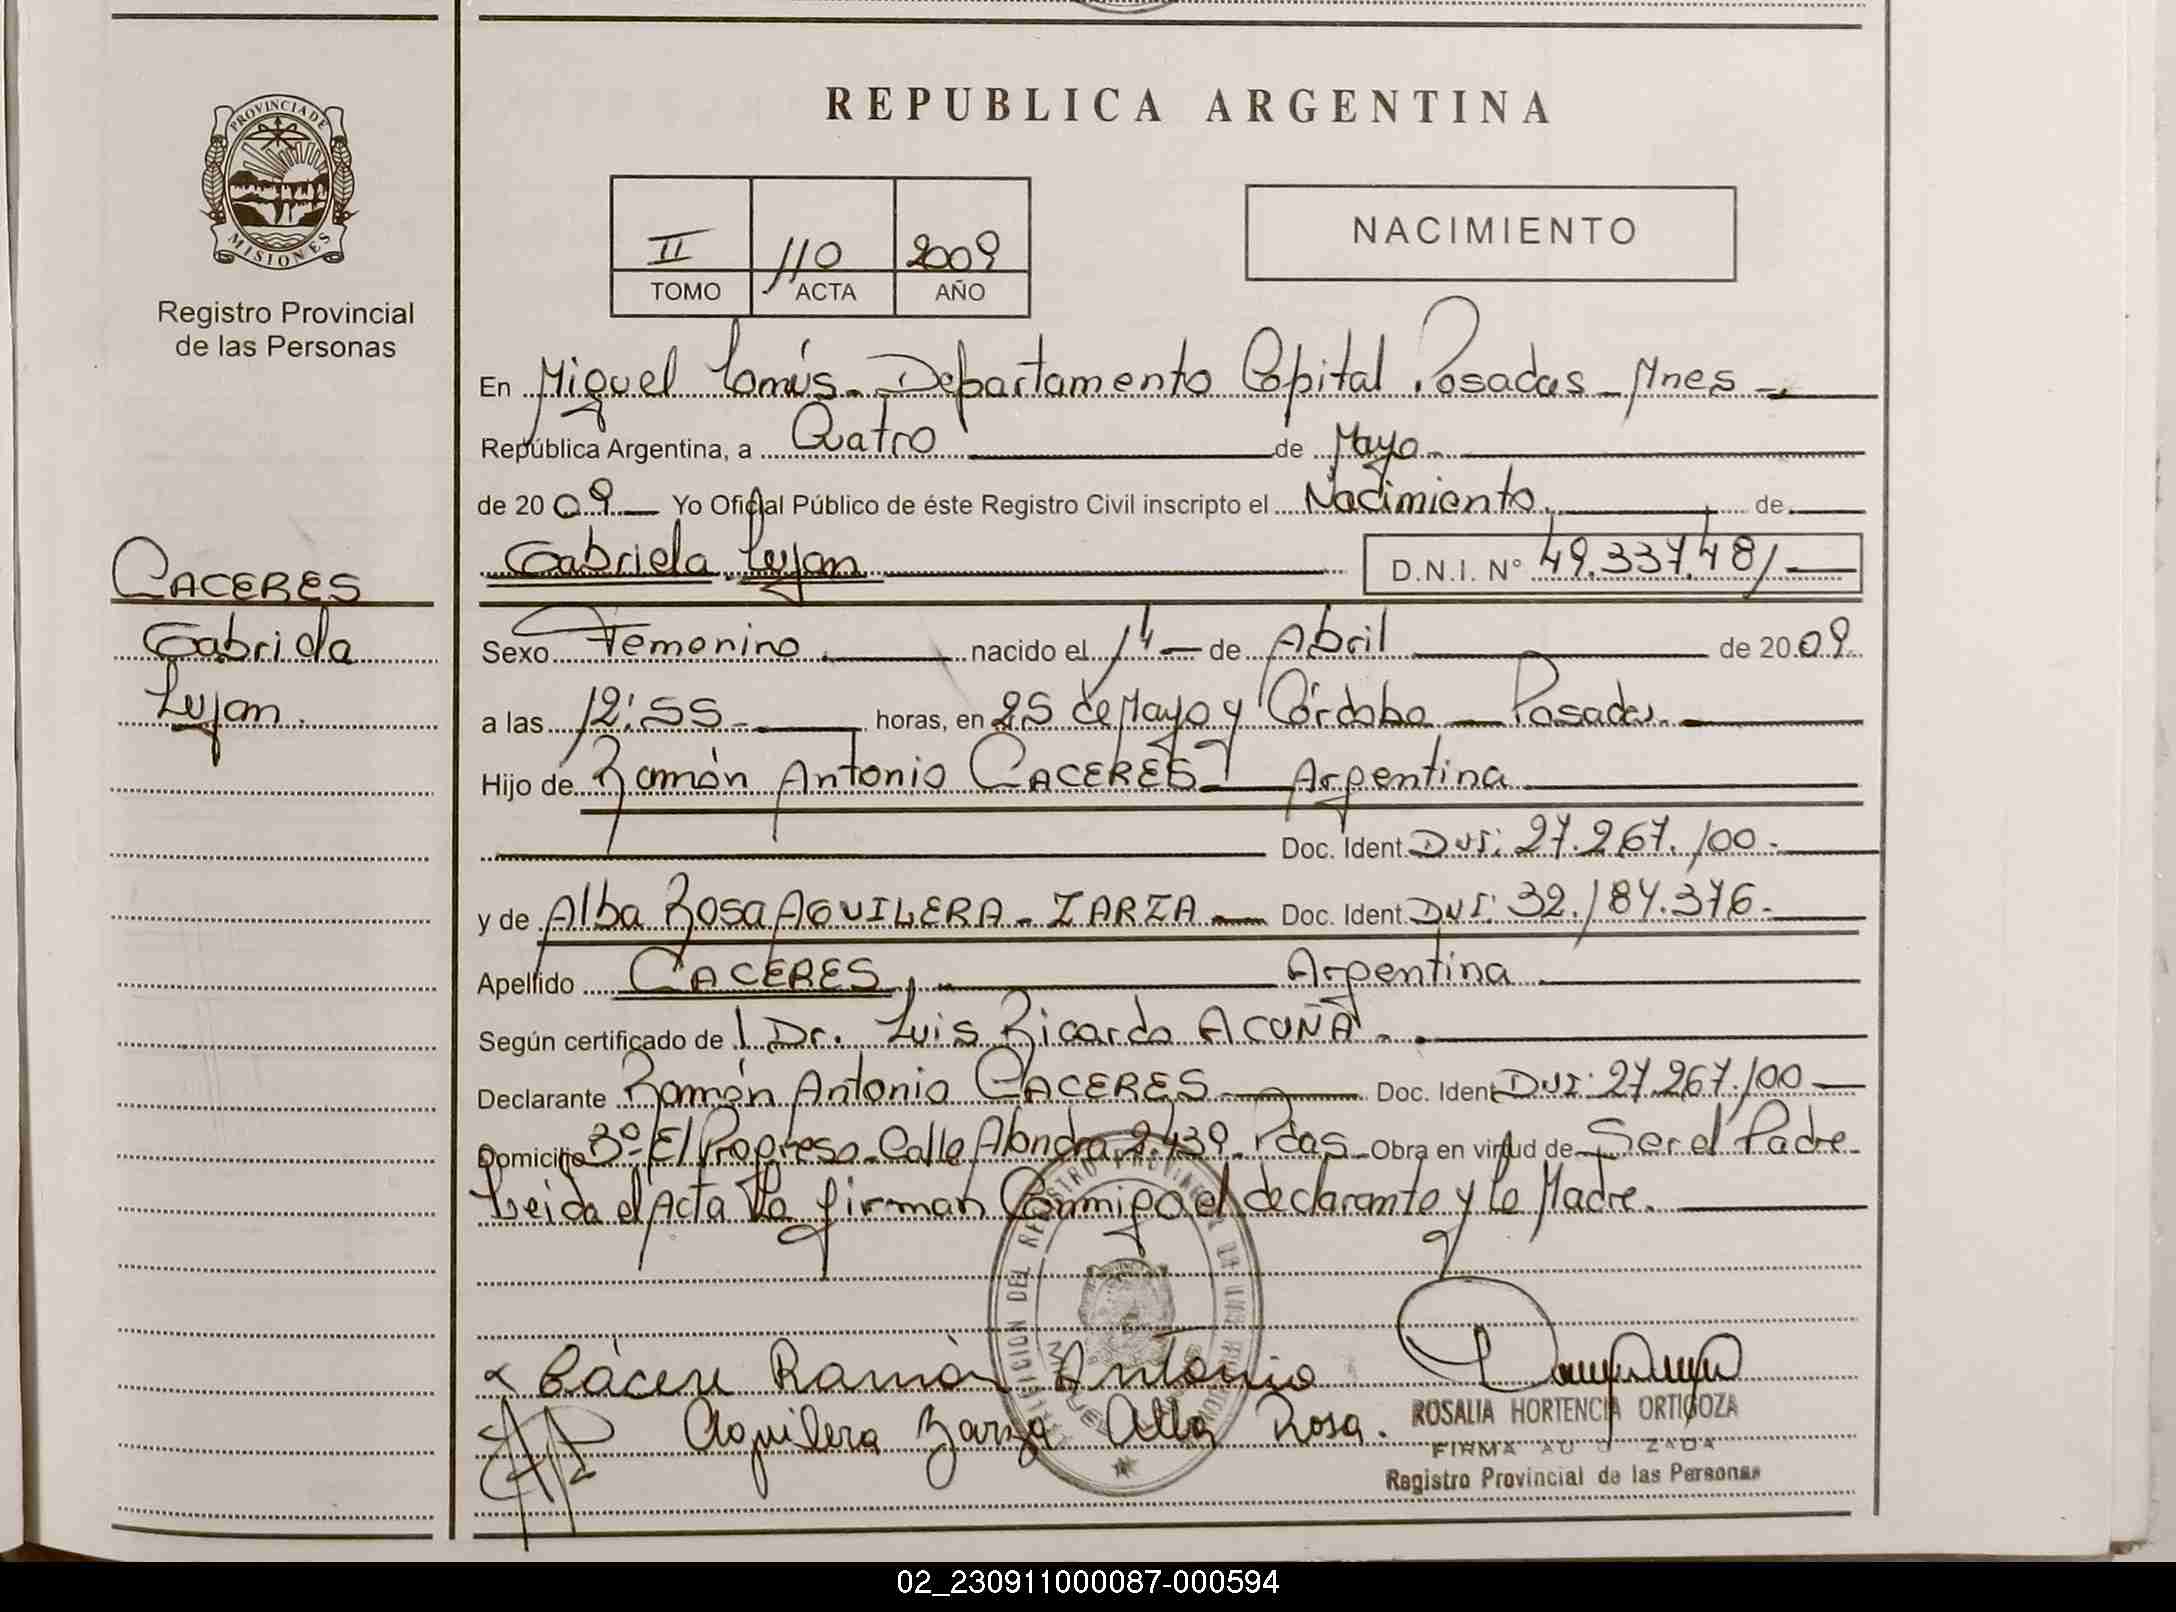 REPUBLICA ARGENTINA
PROVINCIA DE
MISIONES
Registro Provincial
de las Personas
II 110 2009
TOMO ACTA AÑO
NACIMIENTO
En Miguel Lanús - Departamento Capital Posadas - Mnes -
República Argentina, a Quatro de Mayo
de 2009 Yo Oficial Público de éste Registro Civil inscripto el Nacimiento de
Gabriela Lujan D.N.I. Nº 49.337.481
CACERES
Gabriela
Lujan.
Sexo Femenino nacido el 14 de Abril de 2009
a las 12:55 horas, en 25 de Mayo y Córdoba - Posadas
Hijo de Ramón Antonio CACERES Argentina
Doc. Ident. DNI: 27.267.100.
y de Alba Rosa AGUILERA - ZARZA Doc. Ident. DNI: 32.184.376.
Apellido CACERES Argentina
Según certificado de Dr. Luis Ricardo ACUÑA.
Declarante Ramón Antonio CACERES Doc. Ident. DNI: 27.267.100
Domicilio Bº El Progreso - Calle 2.439 - Pdas - Obra en virtud de Ser el Padre.
Leida el Acta la firman Conmigo el declarante y la Madre.
Cácere Ramón Antonio
Aguilera Zarza Alba Rosa.
ROSALIA HORTENCIA ORTIGOZA
FIRMA
Registro Provincial de las Personas
02_230911000087-000594